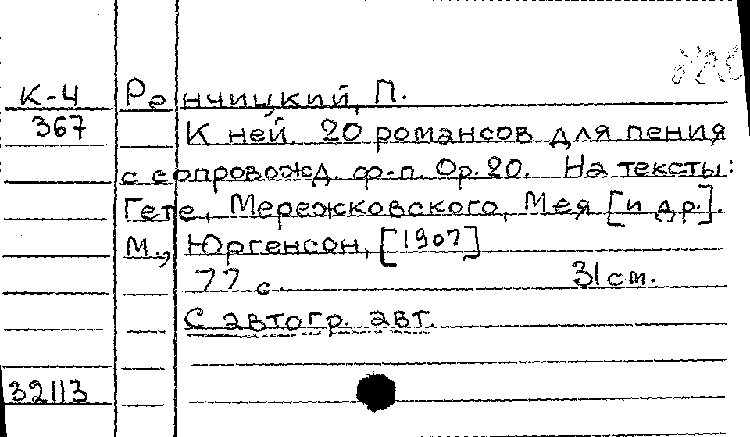 К-4 Ренчицкий, П.
367 К ней. 20 романсов для пения
с сопровожд. ф-п. Ор. 20. На тексты:
Гете, Мережковского, Мея [и др.].
М., Юргенсон, [1907]
77 с. 31 см.
С автогр. авт.
32113